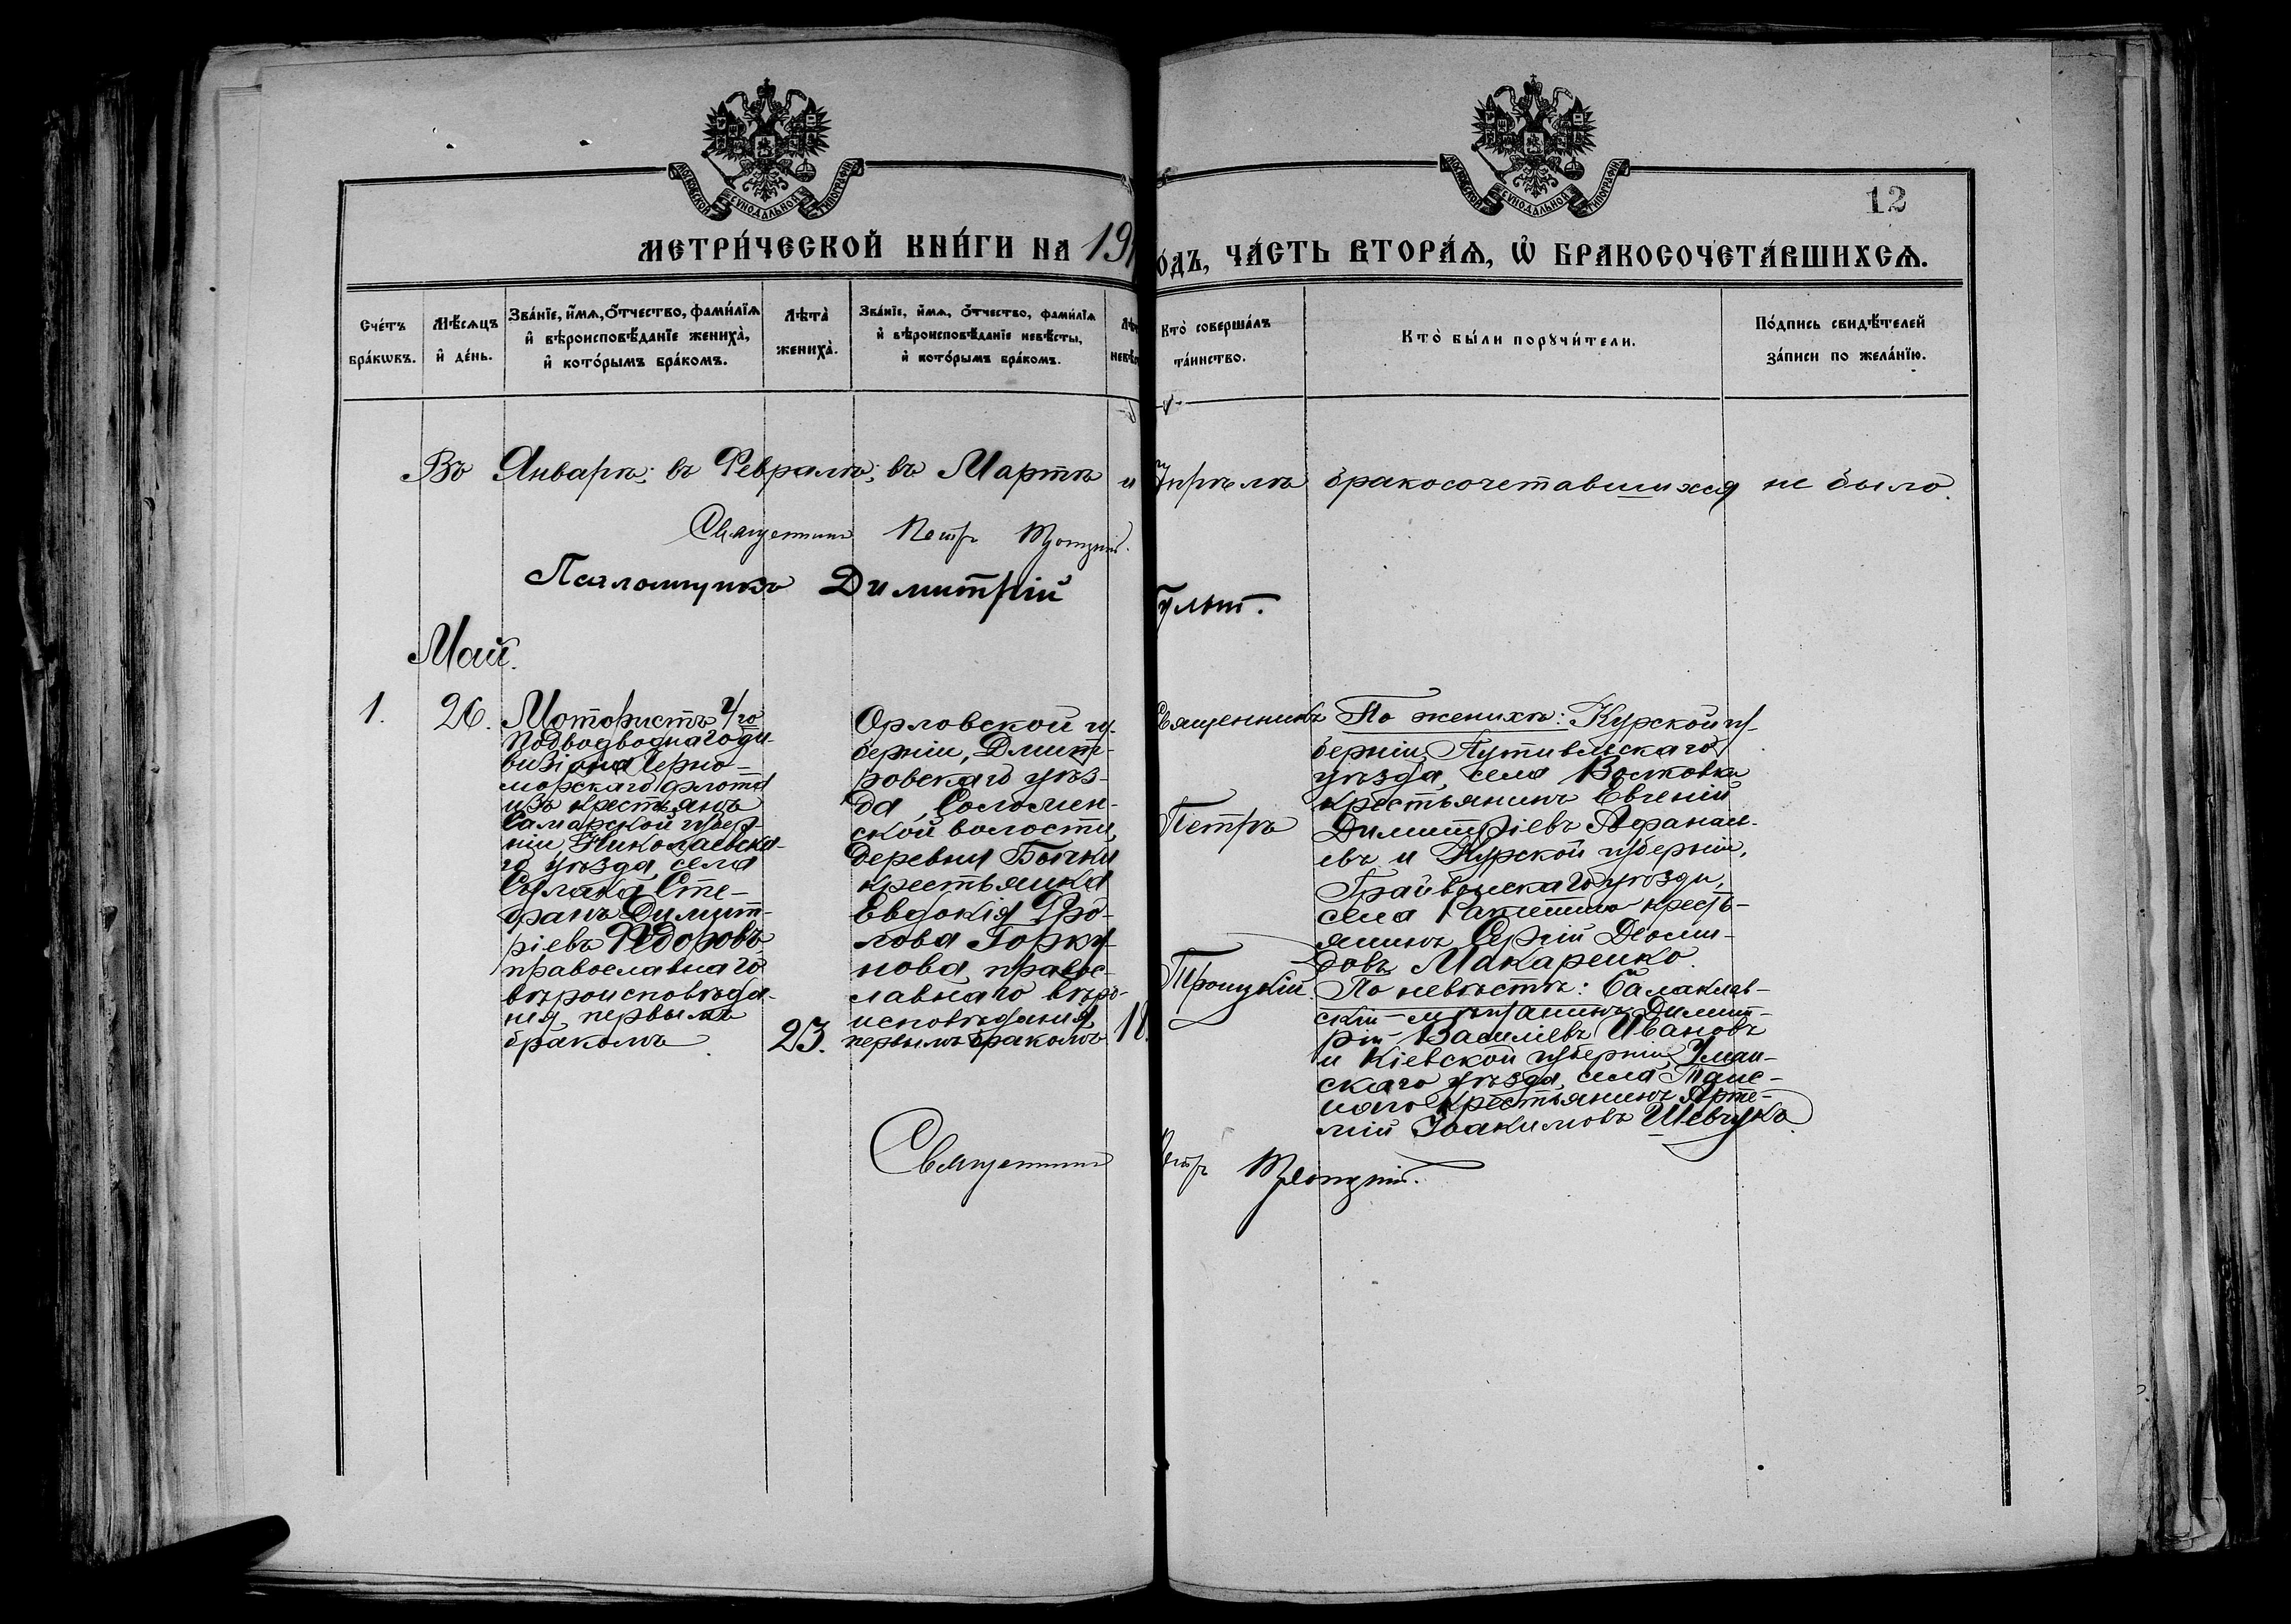 МОСКОВСКОЙ СУНОДАЛЬНОЙ ТИПОГРАФІИ
МОСКОВСКОЙ СУНОДАЛЬНОЙ ТИПОГРАФІИ
12
МЕТРИ́ЧЕСКОЙ КНИ́ГИ НА 191
О́ДЪ, ЧА́СТЬ ВТОРА́Ѧ, Ѽ БРАКОСОЧЕТА́ВШИХСѦ.
Сче́тъ
бра́кѡвъ.
Мѣ́сѧцъ
и҆ де́нь.
Зва́нїе, и҆́мѧ, ѻ҆́тчество, фами́лїѧ
и҆ вѣроисповѣ́данїе жениха̀,
и҆ кото́рымъ бра́комъ.
Лѣта̀
жениха̀.
Зва́нїе, и҆́мѧ, ѻ҆́тчество, фами́лїѧ
и҆ вѣроисповѣ́данїе невѣ́сты,
и҆ кото́рымъ бра́комъ.
Кто̀ соверша́лъ
та́инство.
Кто̀ бы́ли порꙋчи́тели.
По́дпись свидѣ́телей
за́писи по жела́нїю.
Въ Январѣ; въ Февралѣ; въ Мартѣ и Апрѣлѣ бракосочетавшихся не было.
Священникъ Петръ Троицкій.
Псаломщикъ Димитрій
Май.
1.
26.
Мотористъ 1/го
Подводводнаго ди-
визіона Черно-
морскаго флота
изъ крестьянъ
Самарской губер-
ніи, Николаевска-
го уѣзда, села
Сулака Сте-
фанъ Димит-
ріевъ Ѳедоровъ
православнаго
вѣроисповѣда-
нія, первымъ
бракомъ
23.
Орловской гу-
берніи, Дмит-
ровскаго уѣз-
да, Соломин-
ской волости,
деревни Бычки
крестьянка
Евдокія Фро-
лова Горку-
нова, правос-
лавнаго вѣро-
исповѣданія,
первымъ бракомъ
18.
Священникъ
Петръ
Троицкій.
По женихѣ: Курской гу-
берніи Путивльскаго
уѣзда, села Волковки
крестьянинъ Евгеній
Димитріевъ Афанась-
евъ и Курской губерніи,
Грайворскаго уѣзда,
села Ракитино кресть-
янинъ Сергій Діоми-
довъ Макаренко.
По невѣстѣ: Балаклав-
скій мѣщанинъ Димит-
рій Василіевъ Ивановъ
и Кіевской губерніи, Уман-
скаго уѣзда, села
крестьянинъ Арте-
мій Іоакимовъ Шевчукъ
Священникъ Петръ Троицкій.